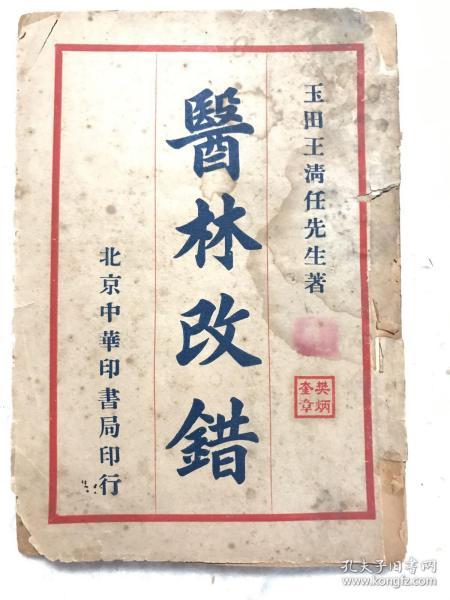 玉田王清任先生著
醫林改錯
北京中華印書局印行
樊炳
奎章
孔夫子旧书网
www.kongfz.com